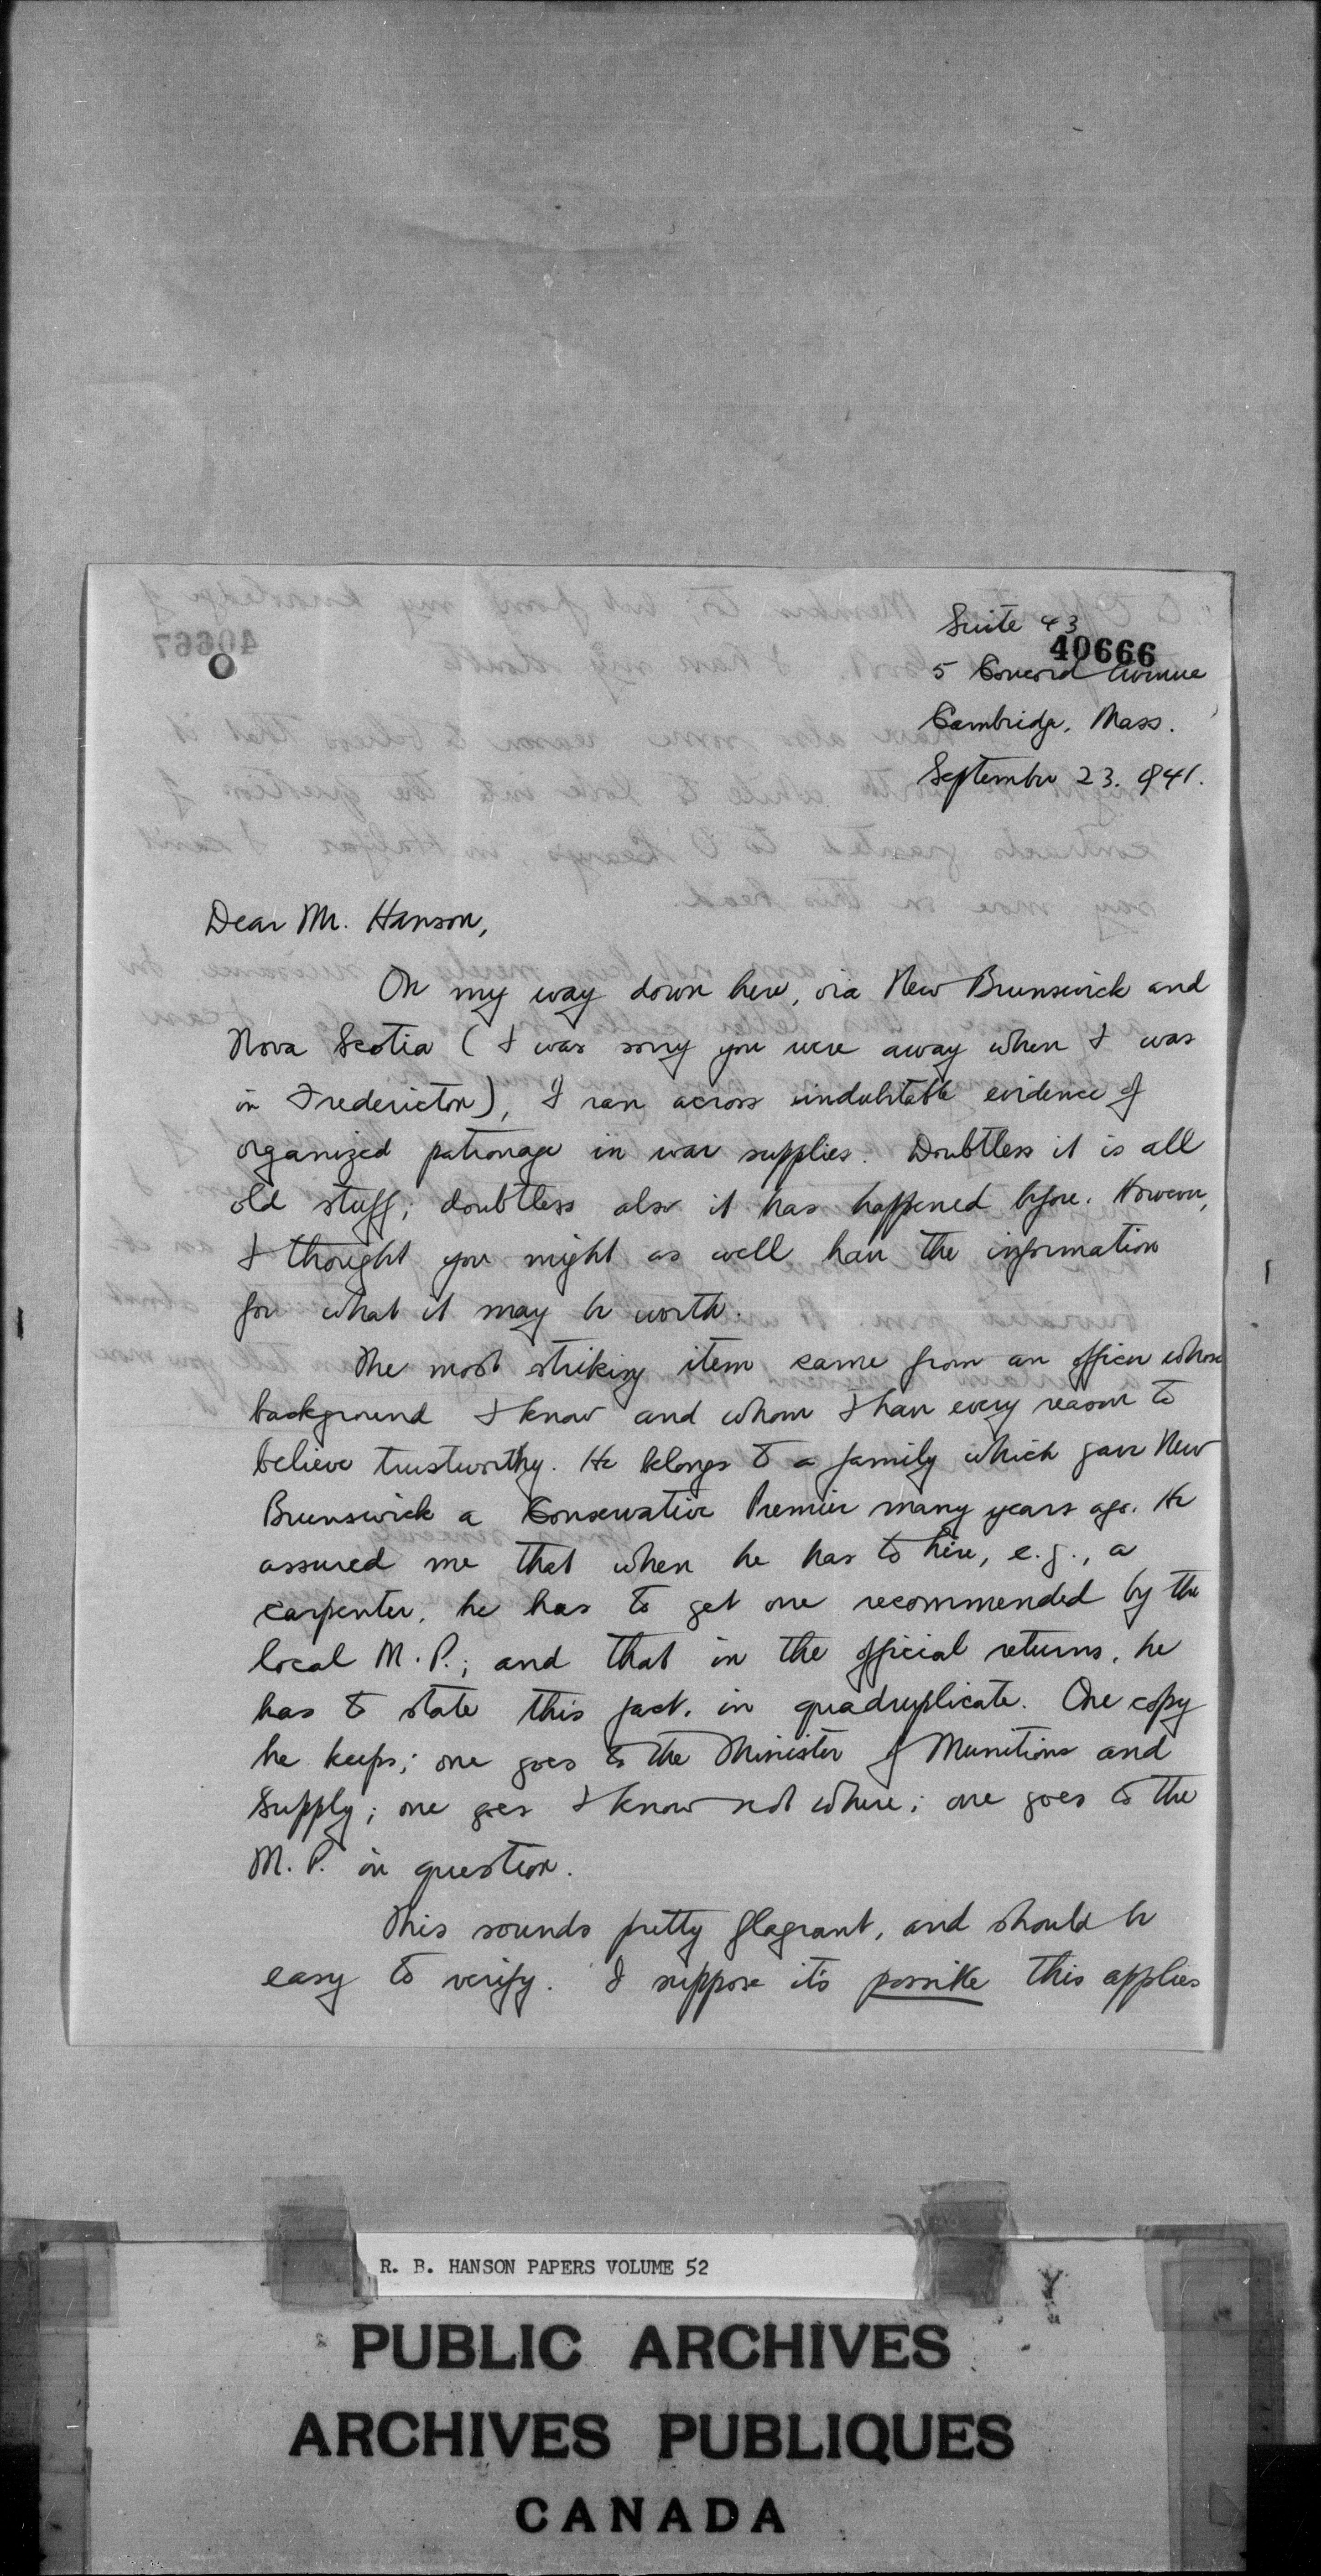 Suite 43
40666
40667
5 Concord Avenue
Cambridge, Mass.
September 23. 1941.
Dear Mr. Hanson,
On my way down here, via New Brunswick and
Nova Scotia (I was sorry you were away when I was
in Fredericton), I ran across indubitable evidence of
organized patronage in war supplies. Doubtless it is all
old stuff; doubtless also it has happened before. However,
I thought you might as well have the information
for what it may be worth.
The most striking item came from an officer whose
background I know and whom I have every reason to
believe trustworthy. He belongs to a family which gave New
Brunswick a Conservative Premier many years ago. He
assured me that when he has to hire, e.g., a
carpenter, he has to get one recommended by the
local M.P.; and that in the official returns, he
has to state this fact, in quadruplicate. One copy
he keeps; one goes to the Minister of Munitions and
Supply; one goes I know not where; one goes to the
M.P. in question.
This sounds pretty flagrant, and should be
easy to verify. I suppose it's possible this applies
R. B. HANSON PAPERS VOLUME 52
PUBLIC ARCHIVES
ARCHIVES PUBLIQUES
CANADA